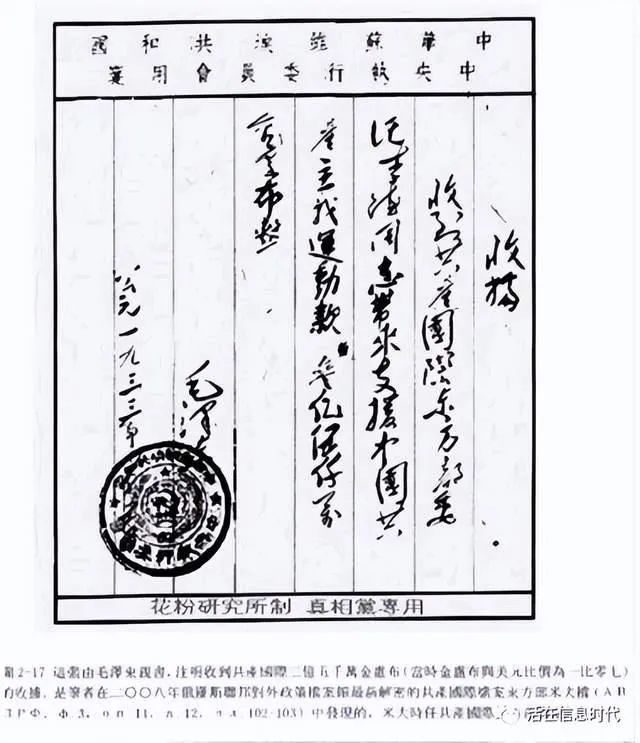 中華蘇維埃共和國
中央執行委員會用箋
收據
收到共產國際東方部委
記李德同志帶來支援中國共
產主義運動款 叁亿伍仟万
金盧布整
毛澤
公元一九三三年
花粉研究所制 真相黨專用
圖2-17 這張由毛澤東親書,注明收到共產國際三億五千萬金盧布(當時金盧布與美元比價為一比零七)
的收據,是筆者在二〇〇八年俄羅斯聯邦對外政策檔案館最新解密的共產國際檔案東方部米夫檔(АВ
ПРФ, ф.3, оп 11, п.12, 102-103)中發現的,米夫時任共產國際
活在信息时代